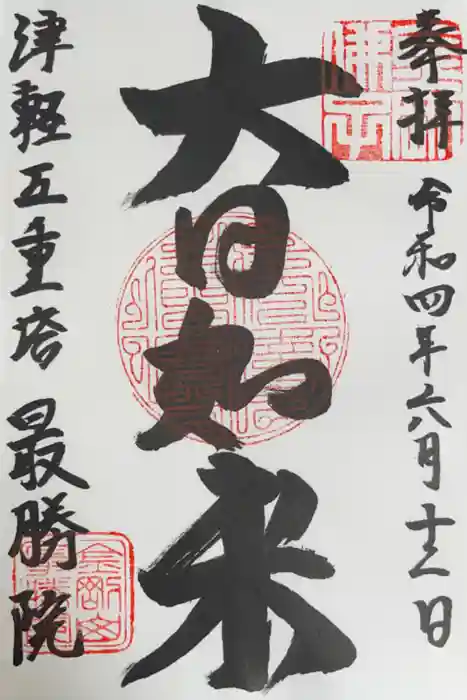 奉拝
令和四年六月十二日
大日如来
津軽五重塔 最勝院